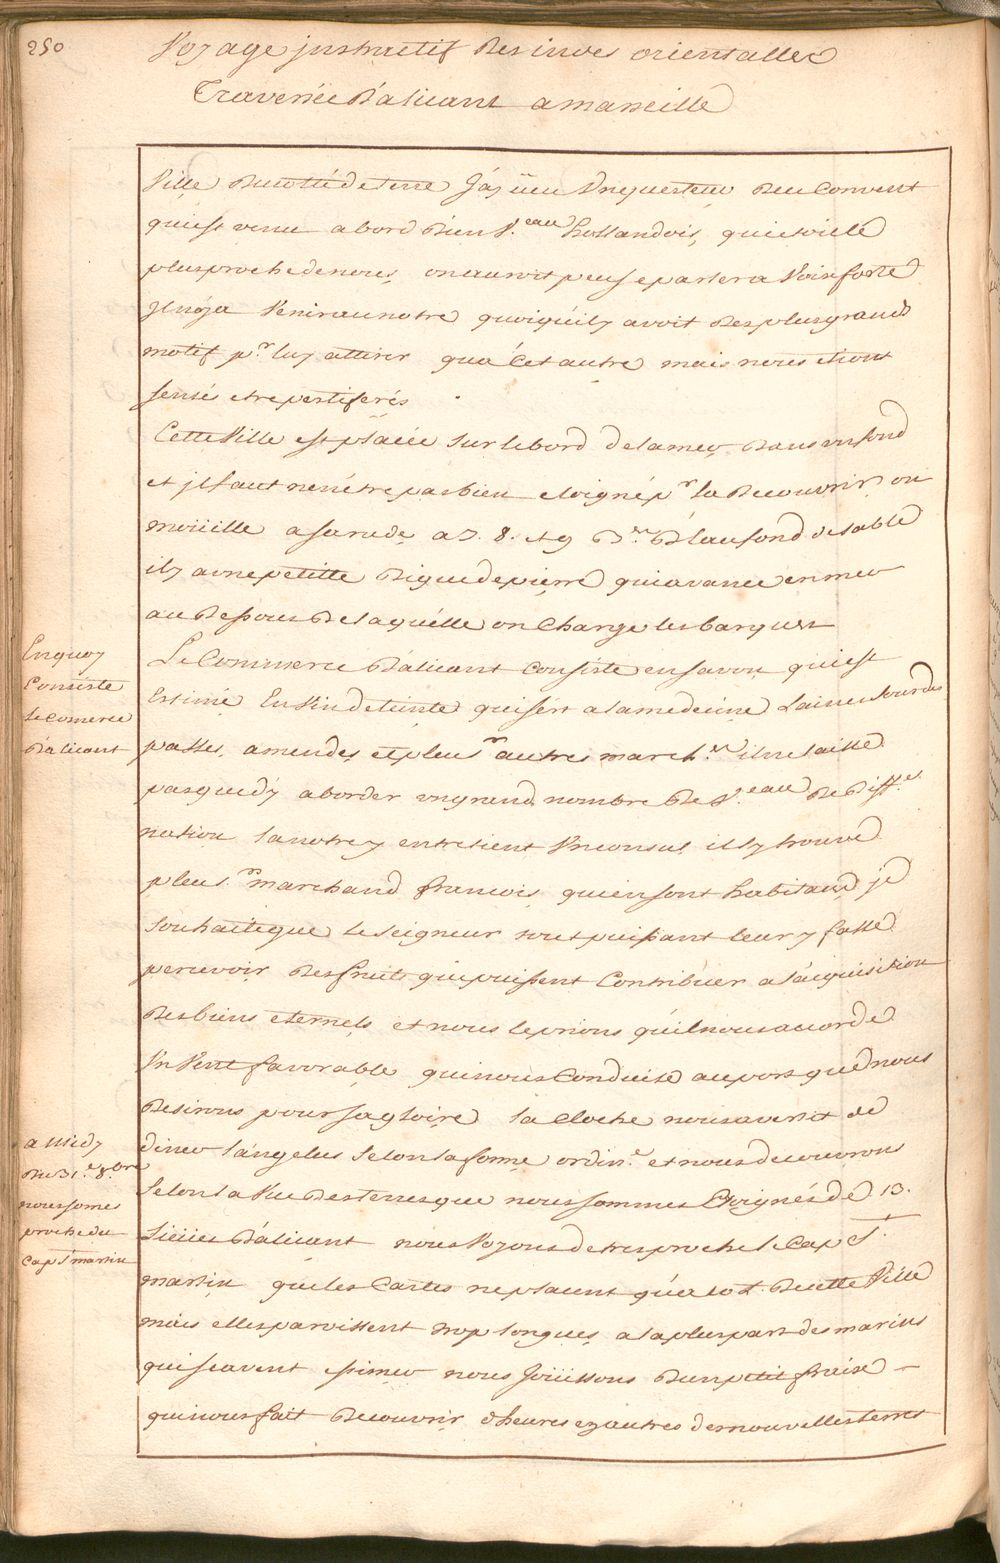 250
Voyage instructif Des indes orientalles
Traversée D'alicant a marseille
Ville Du costé de terre J'ay veu Un questeur Deu Convent
qui est venu abord D'un V.eau hollandois, qui etoit le
plus proche de nous, on auroit peu se parler a Voix forte
Il nosa Venir au notre quoiqu'il y avoit Des plus grands
motif p.r luy attirer qua Cet autre mais nous etions
sensés etre pestiferés
Cette Ville est placée sur le bord de la mer, Dans un fond
et il faut n'en être pas bien eloigné p.r la Decouvrir on
moüille a sa rade a 7. 8. et 9 B.es D'eau fond de sable
il y a une petitte Digue de pierre qui avance en mer
au Dessous De laquélle on Charge les barques
En quoy
Consiste
le Comerce
D'alicant
Le Commerce D'alicant Consiste en savon, qui est
Estimé En Vin de teinte qui sert a la medecine Laine Sourdes
passes, amendes, et pleus.rs autres march.es il ne laisse
pas que d'y aborder un grand nombre De V.eau De Diff.es
nation la notre y entretient Un consul il s'y trouve
pleus.rs marchand francois, qui en sont habitand, je
souhaite que le Seigneur tout puissant leur y fasse
percevoir Des fruits qui puissent Contribuer a l'aquisition
Des biens eternels, et nous le prions qu'il nous accorde
Un Vent favorable qui nous Conduise au port que nous
Desirons pour sa gloire la Cloche nous avertit de
a Midy
Du 31.e 8.bre
nous somes
proche du
Cap S.t martin
diner l'angelus selon la forme ordin.e et nous decouvrons
selon la Vue Des terres que nous sommes Eloignés de 13.
Lieües D'alicant nous Voyons de tres proche le Cap S.t
martin que les Cartes ne placent qu'a 10 L. De cette Ville
mais elles paroissent trop longues, a la plus part des marins
qui scavent estimer nous Joüissons D'un petit fraix
qui nous fait Decouvrir d'heures en autres de nouvelles terres